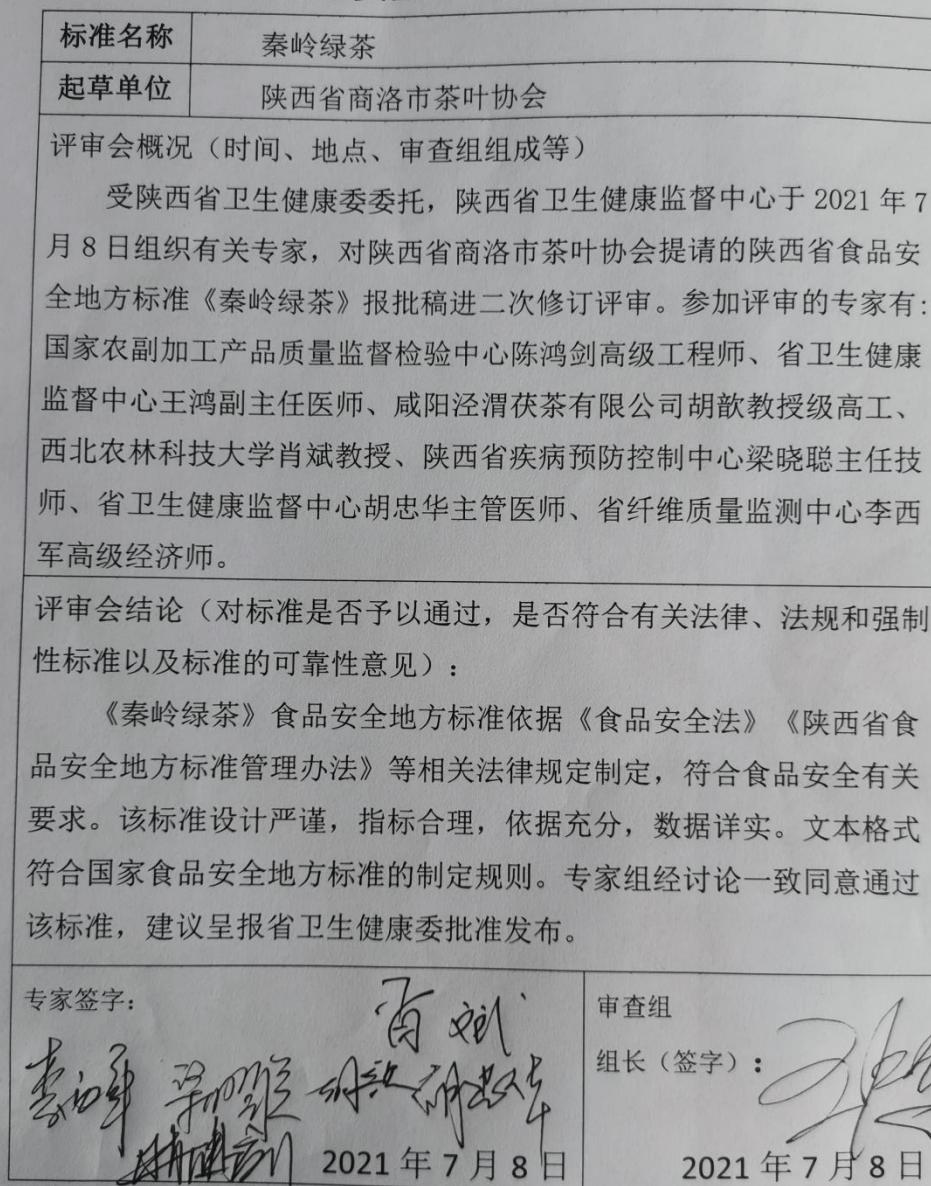 标准名称 秦岭绿茶
起草单位 陕西省商洛市茶叶协会
评审会概况（时间、地点、审查组组成等）
受陕西省卫生健康委委托，陕西省卫生健康监督中心于 2021 年 7
月 8 日组织有关专家，对陕西省商洛市茶叶协会提请的陕西省食品安
全地方标准《秦岭绿茶》报批稿进二次修订评审。参加评审的专家有：
国家农副加工产品质量监督检验中心陈鸿剑高级工程师、省卫生健康
监督中心王鸿副主任医师、咸阳泾渭茯茶有限公司胡歆教授级高工、
西北农林科技大学肖斌教授、陕西省疾病预防控制中心梁晓聪主任技
师、省卫生健康监督中心胡忠华主管医师、省纤维质量监测中心李西
军高级经济师。
评审会结论（对标准是否予以通过，是否符合有关法律、法规和强制
性标准以及标准的可靠性意见）：
《秦岭绿茶》食品安全地方标准依据《食品安全法》《陕西省食
品安全地方标准管理办法》等相关法律规定制定，符合食品安全有关
要求。该标准设计严谨，指标合理，依据充分，数据详实。文本格式
符合国家食品安全地方标准的制定规则。专家组经讨论一致同意通过
该标准，建议呈报省卫生健康委批准发布。
专家签字：
肖斌
李西军 梁晓聪 胡歆 胡忠华
2021 年 7 月 8 日
审查组
组长（签字）：
2021 年 7 月 8 日